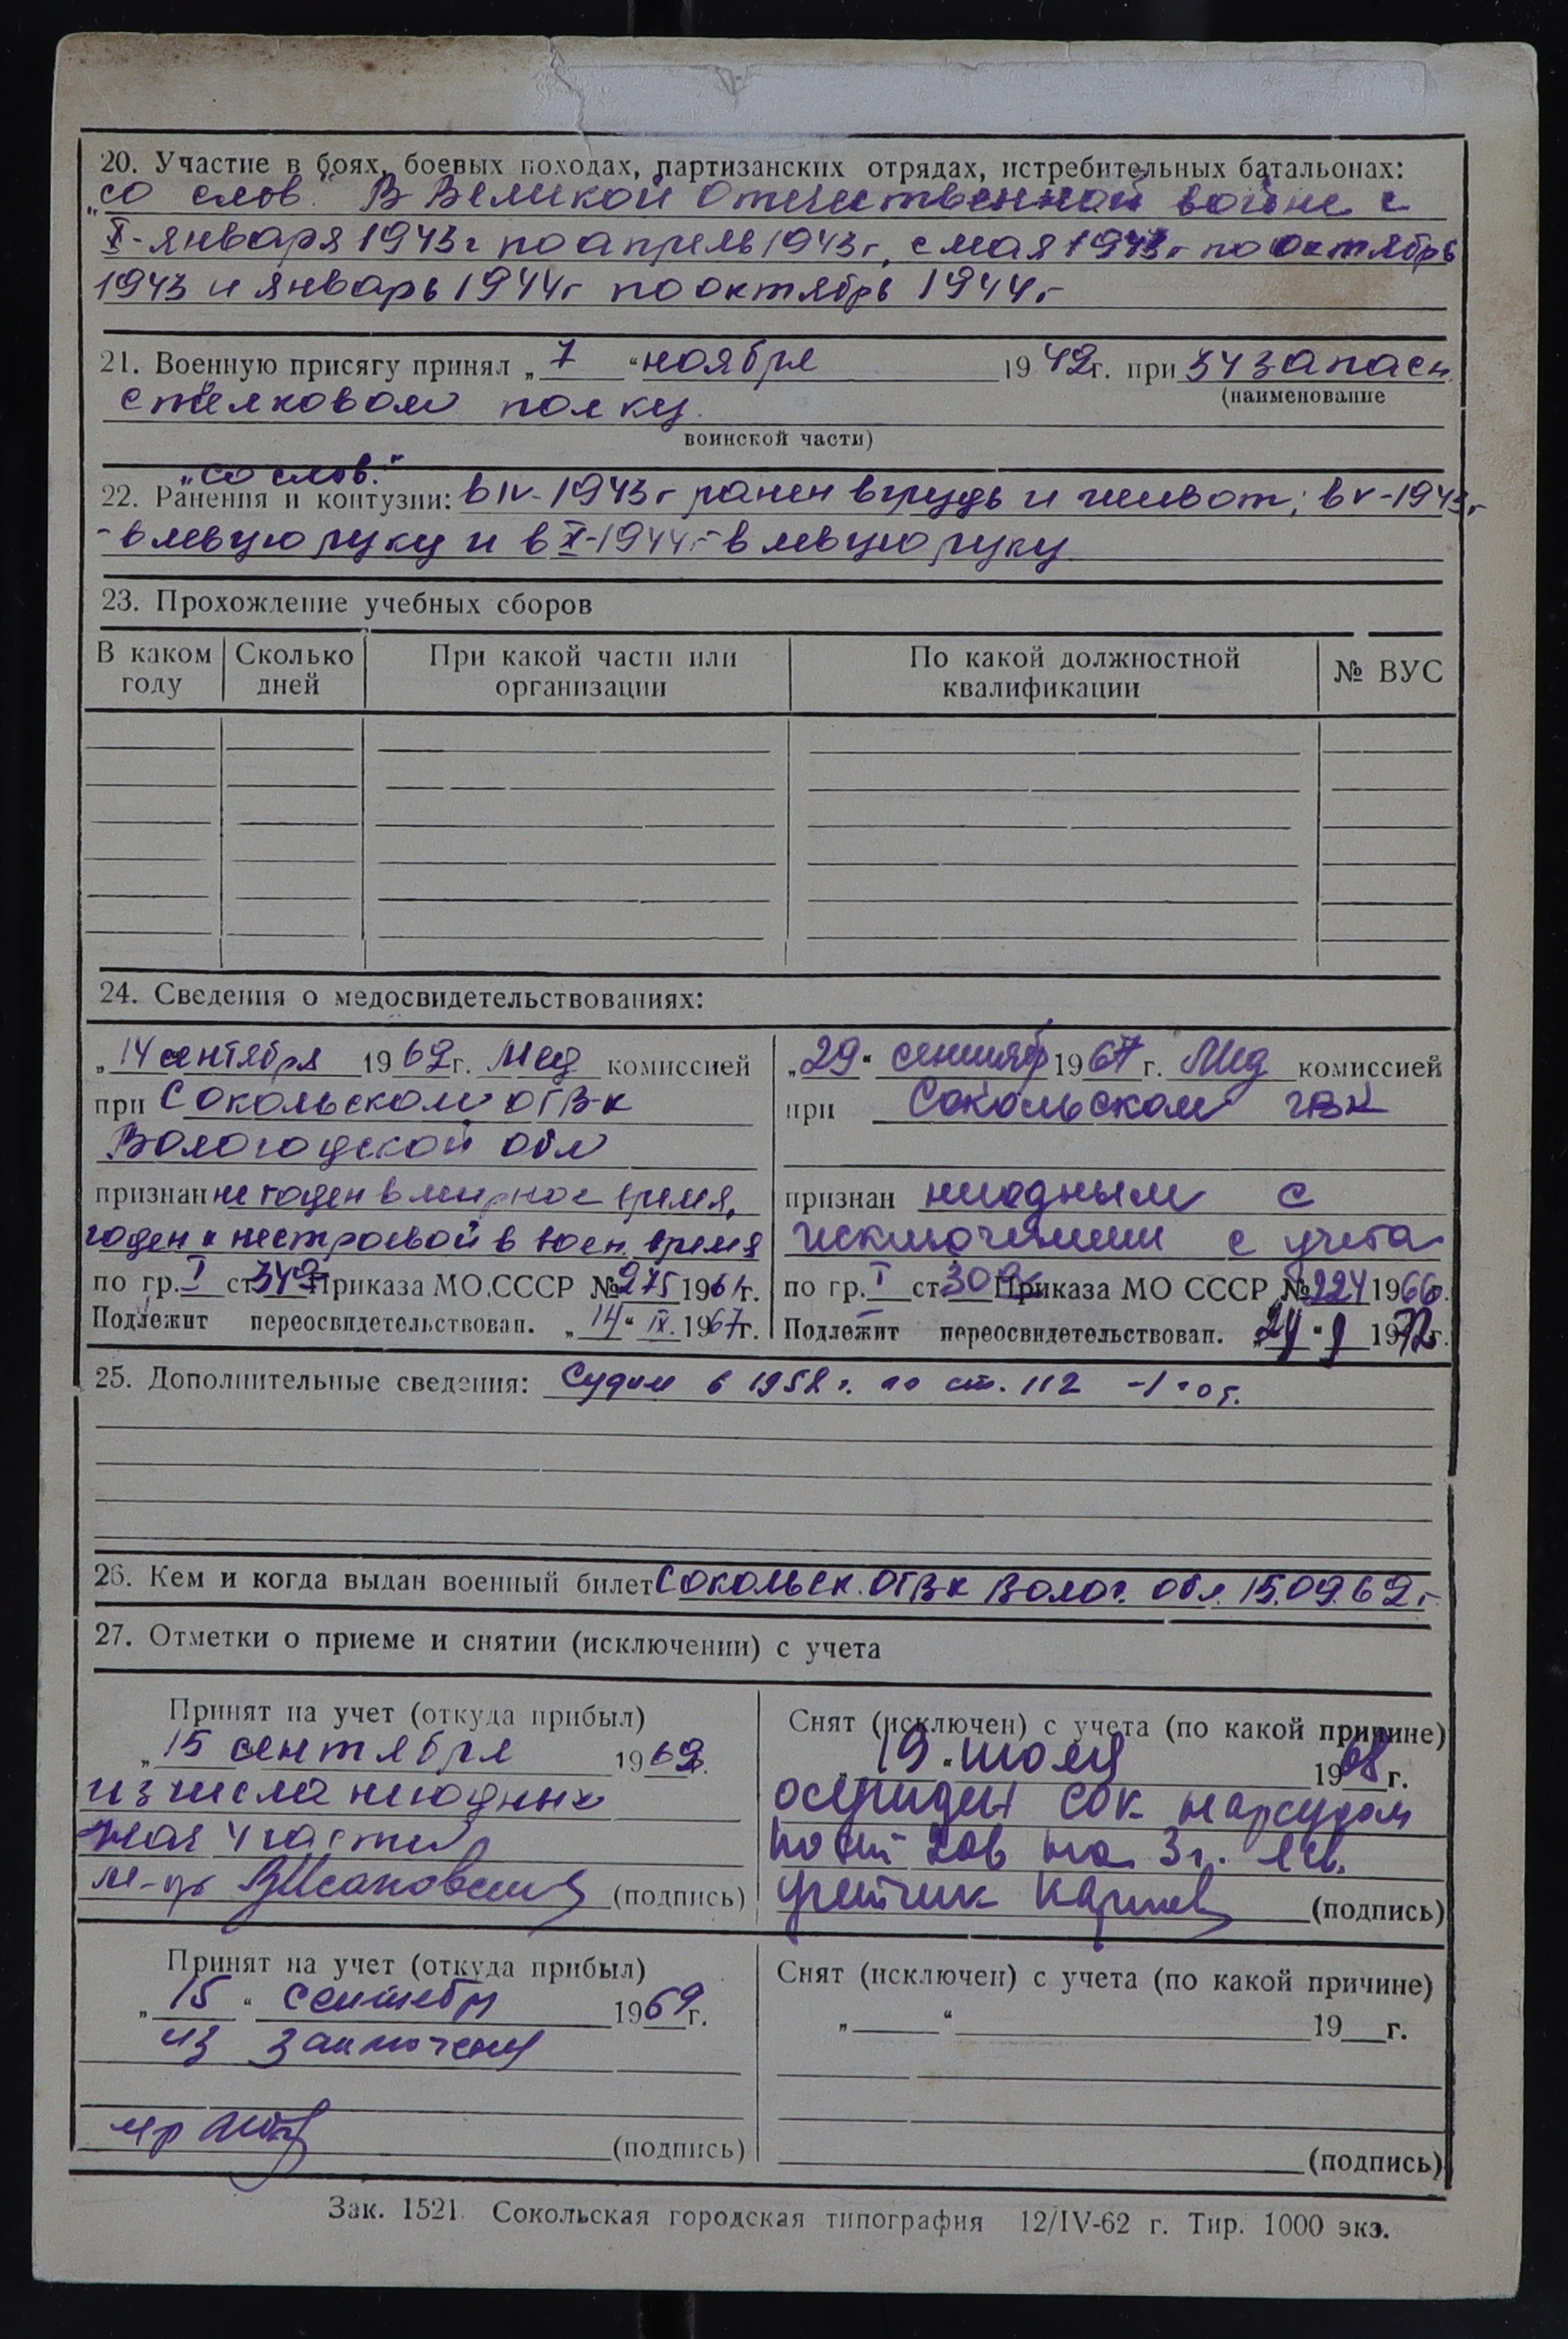 20. Участие в боях, боевых походах, партизанских отрядах, истребительных батальонах:
„со слов." В Великой Отечественной войне с
X-января 1943г по апрель 1943г, с мая 1943г по октябрь
1943 и январь 1944г по октябрь 1944г
21. Военную присягу принял „7 “ ноября 1942г. при 34 запасн
(наименование
стрелковом полку.
воинской части)
„со слов."
22. Ранения и контузии: в IV-1943г ранен в грудь и живот; в V-1943г
- в левую руку и в X-1944г- в левую руку
23. Прохождение учебных сборов
В каком году
Сколько дней
При какой части или организации
По какой должностной квалификации
№ ВУС
24. Сведения о медосвидетельствованиях:
„14 сентября 1962г. Мед комиссией
при Сокольском ОГВК
Вологодской обл
признан не годен в мирное время,
годен к нестроевой в воен. время
по гр. I ст 349 Приказа МО СССР № 275 1961г.
Подлежит переосвидетельствован. „14“ IX. 1967г.
„29“ сентябр 1967 г. Мед комиссией
при Сокольском ГВК
признан негодным с
исключением с учета
по гр. I ст 30 Приказа МО СССР № 224 1966г.
Подлежит переосвидетельствован. 1972г.
25. Дополнительные сведения: Судим в 1958 г. по ст. 112 -1 год.
26. Кем и когда выдан военный билет Сокольск. ОГВК Волог. обл. 15.09.62г
27. Отметки о приеме и снятии (исключении) с учета
Принят на учет (откуда прибыл)
„15 сентября 1962г.
из числа негодных
м-р (подпись)
Снят (исключен) с учета (по какой причине)
19 “ июля 1968г.
осужден Сок нарсудом
по ст 206 на 3 г.
учетчик (подпись)
Принят на учет (откуда прибыл)
„15“ сентября 1969г.
из заключения
(подпись)
Снят (исключен) с учета (по какой причине)
„ “ 19 г.
(подпись)
Зак. 1521. Сокольская городская типография 12/IV-62 г. Тир. 1000 экз.